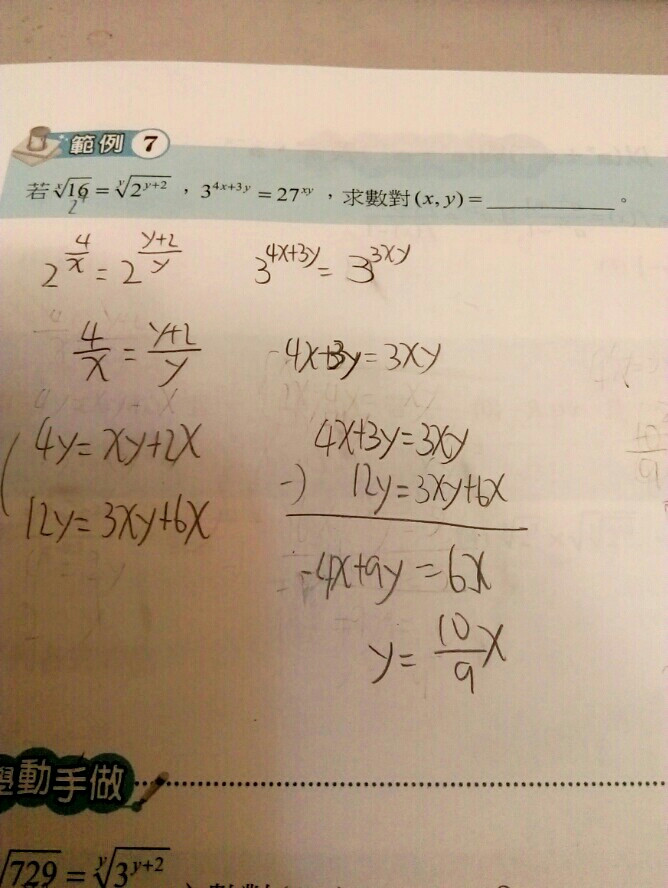 範例 7
若 ˣ√16 = ʸ√2^(y+2) ，3^(4x+3y) = 27^(xy) ，求數對 (x, y) = ________ 。
2⁴
2^(4/x) = 2^((y+2)/y) 3^(4x+3y) = 3^(3xy)
4/x = (y+2)/y 4x+3y = 3xy
4y = xy+2x 4x+3y = 3xy
12y = 3xy+6x -) 12y = 3xy+6x
-4x+9y = 6x
y = 10/9 x
動手做
√729 = ʸ√3^(y+2)